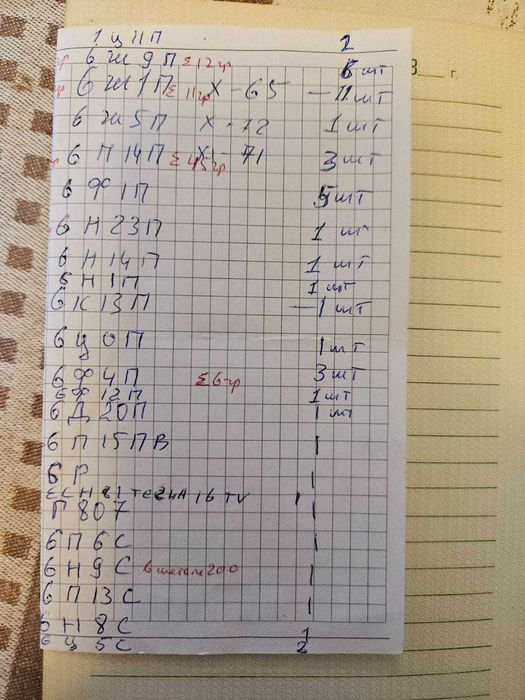 1 Ц 11 П 2
6 Ж 9 П Σ12гр 6 шт
6 Ж 1 П Σ 11гр Х - 65 - 11 шт
6 Ж 5 П Х - 72 1 шт
6 П 14 П Σ 45гр Х - 71 3 шт
6 Ф 1 П 5 шт
6 Н 23 П 1 шт
6 Н 14 П 1 шт
6 Н 1 П 1 шт
6 К 13 П - 1 шт
6 Ц 0 П 1 шт
6 Ф 4 П Σ6гр 3 шт
6 Ф 12 П 1 шт
6 Д 20 П 1 шт
6 П 15 П В 1
6 Р 1
ECH 81 TESLA 16 TV 1
Г 807 1
6 П 6 С 1
6 Н 9 С 1
6 П 13 С 1
6 Н 8 С 1
6 Ц 5 С 2